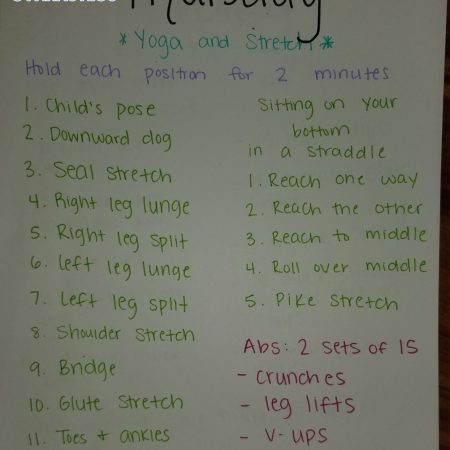 Thursday
*Yoga and Stretch*
Hold each position for 2 minutes
1. Child's pose
2. Downward dog
3. Seal stretch
4. Right leg lunge
5. Right leg split
6. left leg lunge
7. left leg split
8. Shoulder stretch
9. Bridge
10. Glute stretch
11. Toes + ankles
Sitting on your
bottom
in a straddle
1. Reach one way
2. Reach the other
3. Reach to middle
4. Roll over middle
5. Pike stretch
Abs: 2 sets of 15
- crunches
- leg lifts
- v-ups